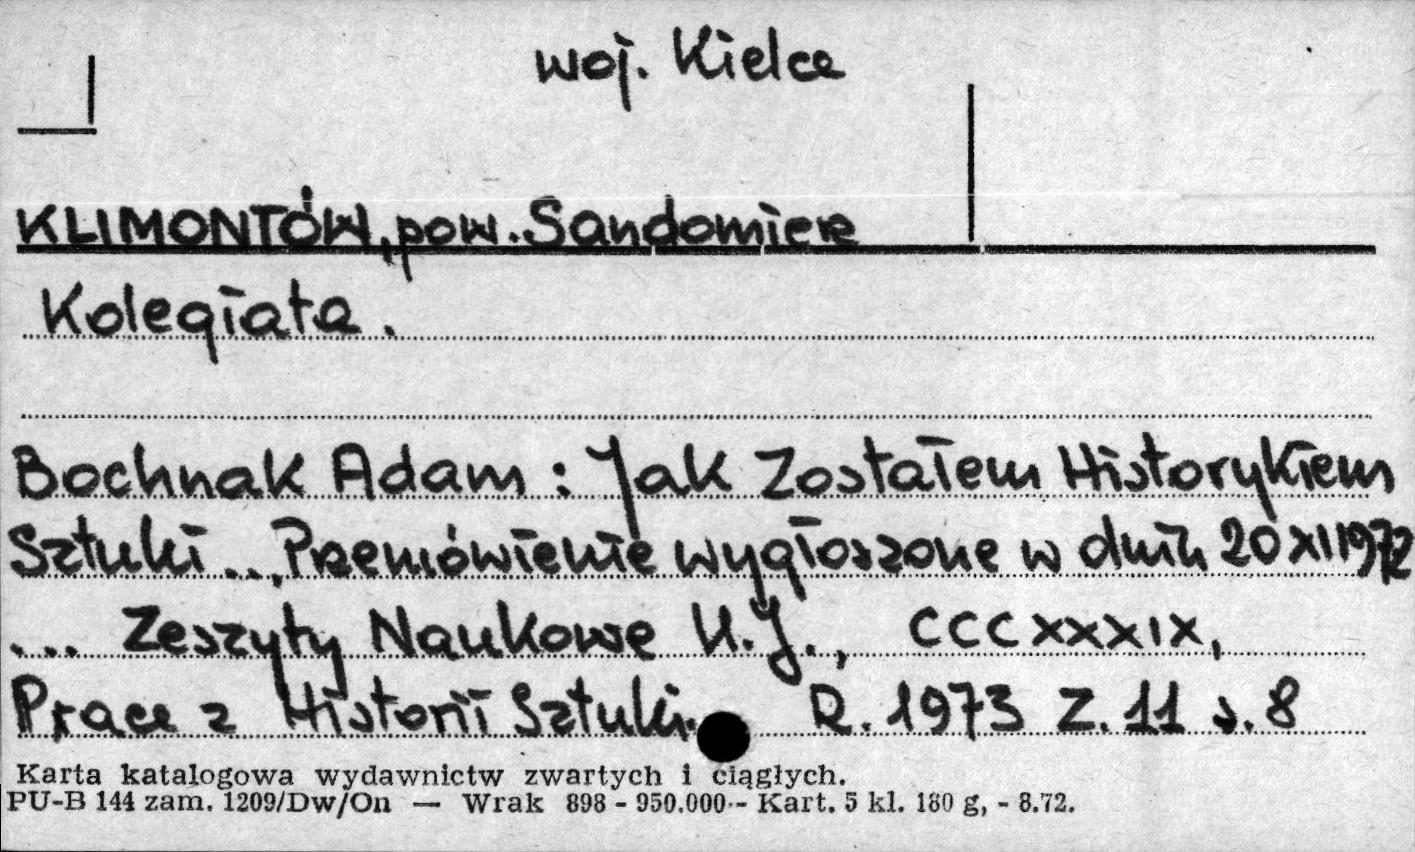 woj. Kielce
KLIMONTÓW, pow. Sandomierz
Kolegiata.
Bochnak Adam : Jak Zostałem Historykiem
Sztuki... Przemówienie wygłoszone w dniu 20 XI 1972
... Zeszyty Naukowe U.J., CCCXXXIX,
Prace z Historii Sztuki. R. 1973 Z. 11 s. 8
Karta katalogowa wydawnictw zwartych i ciągłych.
PU-B 144 zam. 1209/Dw/On — Wrak 898 - 950.000 - Kart. 5 kl. 180 g, - 8.72.